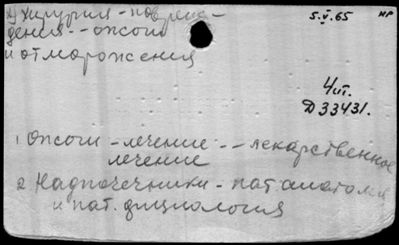 Хирургия - повреж-
дения -- ожоги
и отморожения
5.V.65
НР
Чит.
Д 33431.
1 Ожоги - лечение -- лекарственное
лечение
2 Надпочечники - пат. анатомия
и пат. физиология